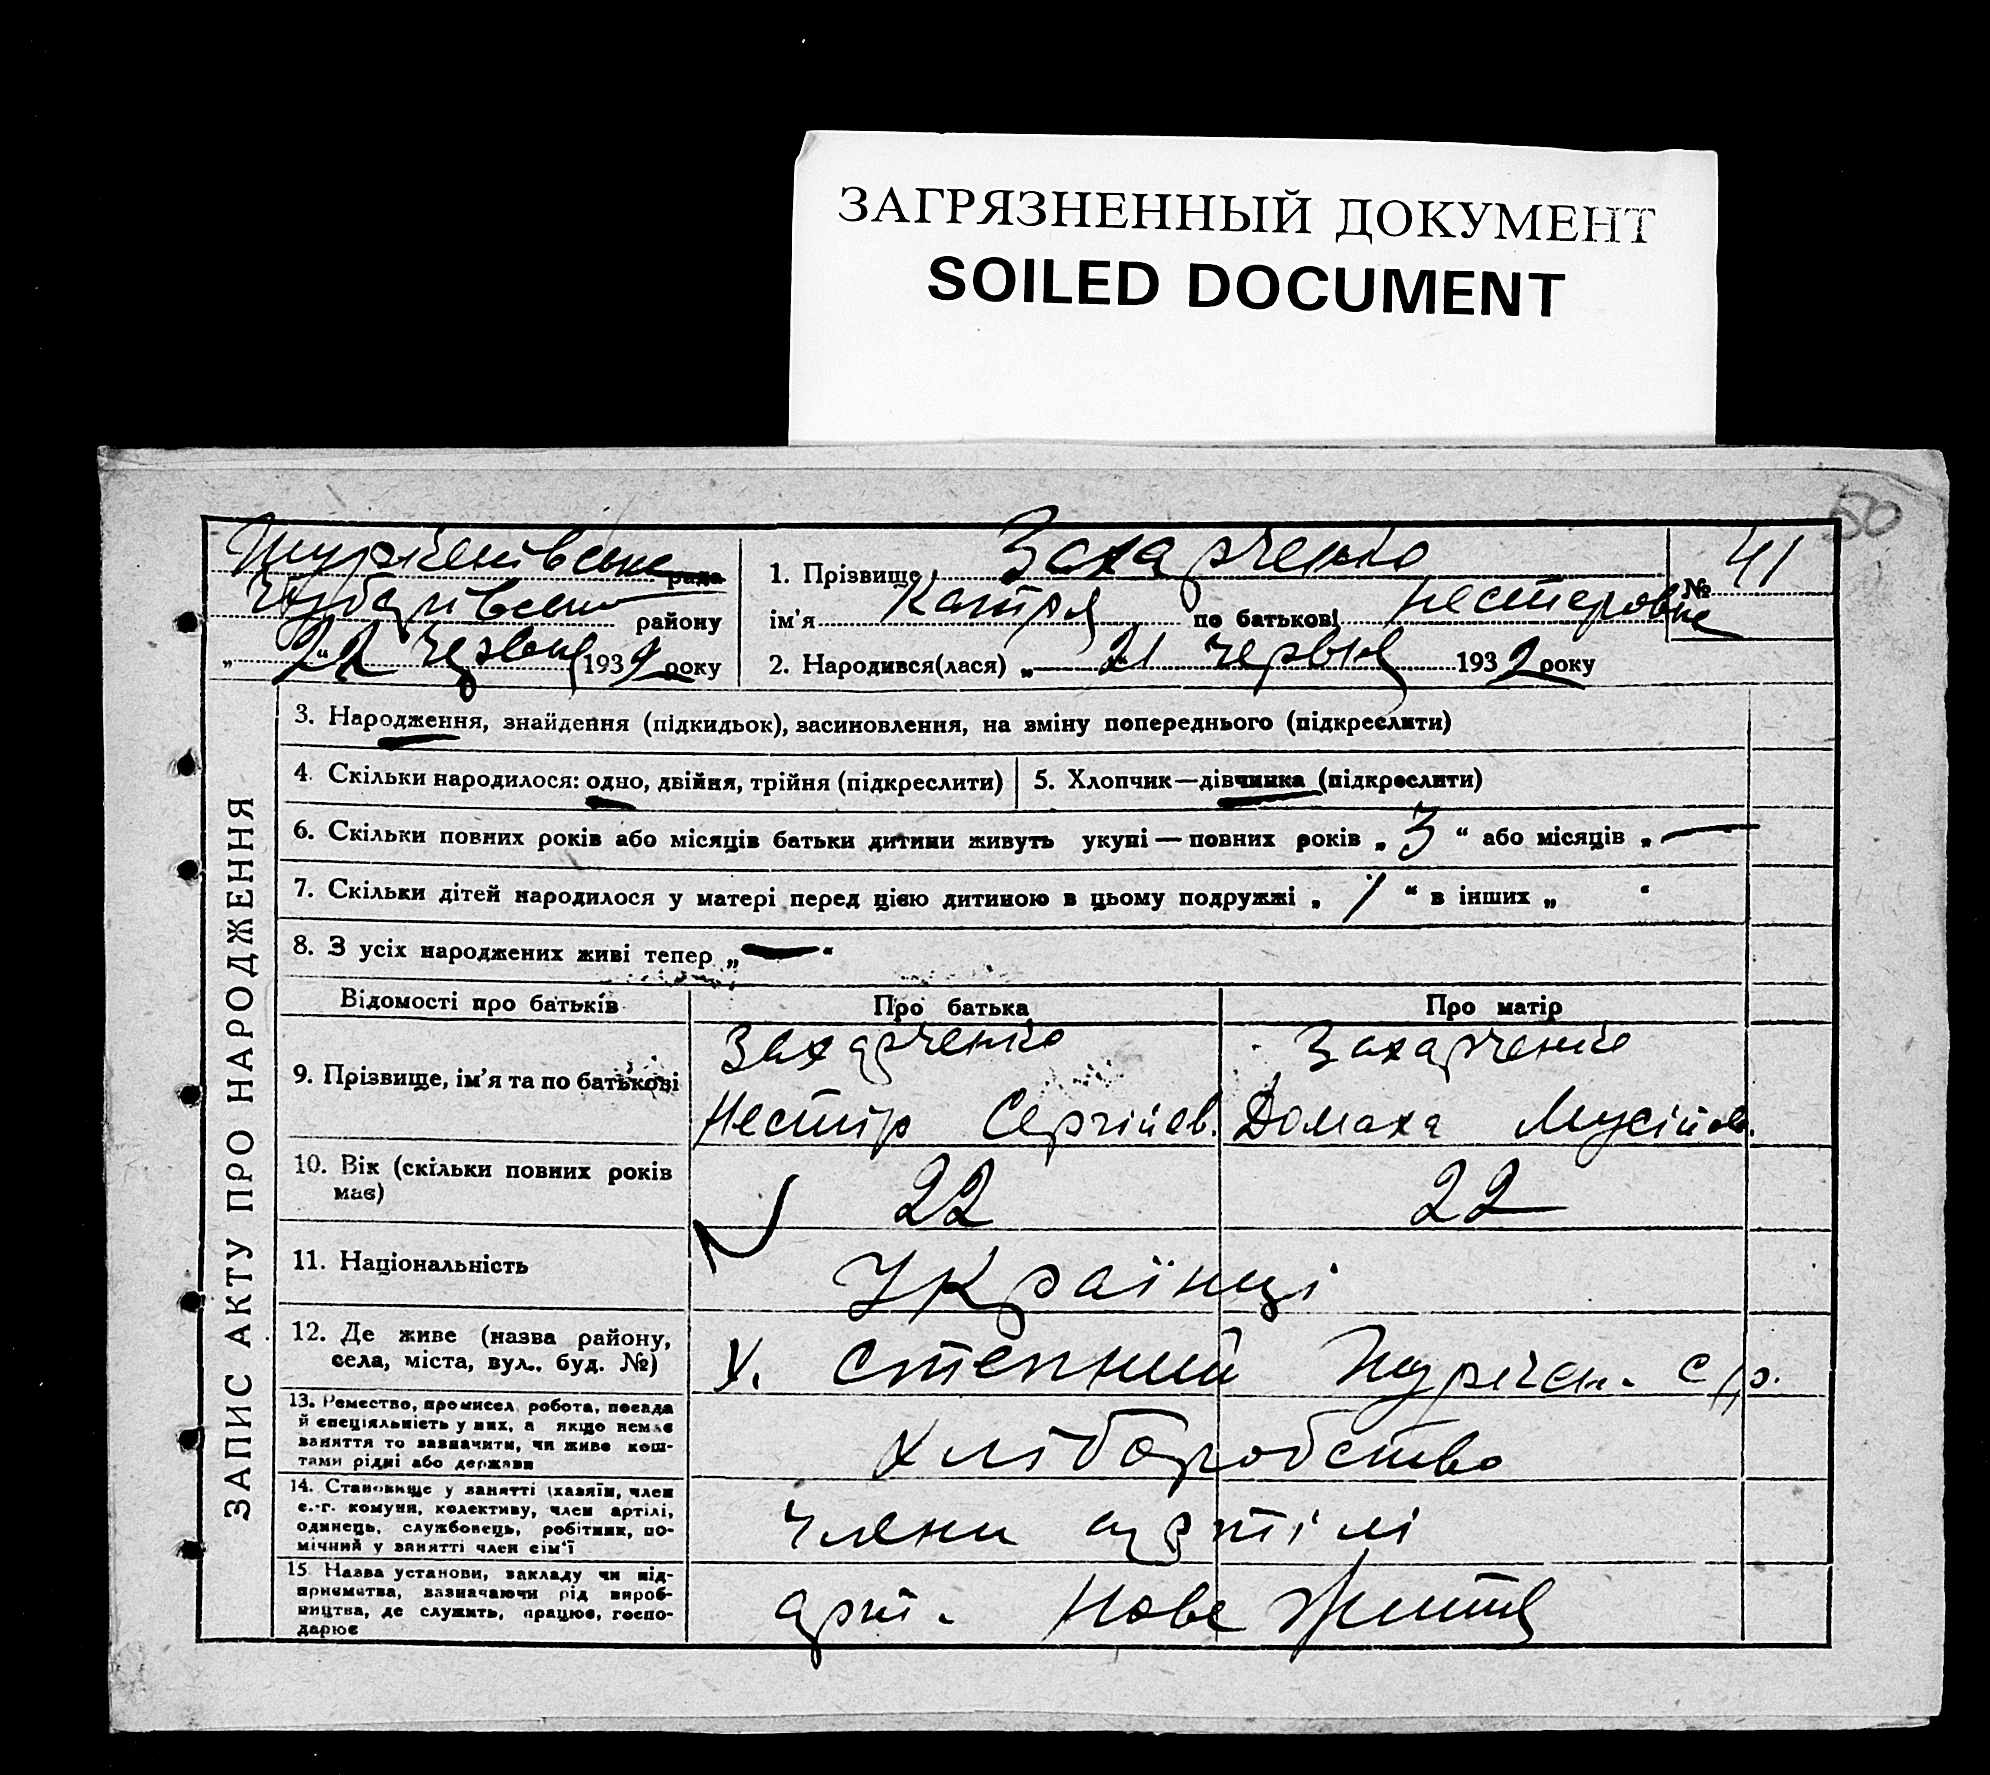 ЗАГРЯЗНЕННЫЙ ДОКУМЕНТ
SOILED DOCUMENT
50
рада
району
„22“ червня 1932 року
1. Прізвище Захарченко
№ 41
ім'я Катря по батькові Нестеровна
2. Народився(лася) „21“ червня 1932 року
ЗАПИС АКТУ ПРО НАРОДЖЕННЯ
3. Народження, знайдення (підкидьок), засиновлення, на зміну попереднього (підкреслити)
4. Скільки народилося: одно, двійня, трійня (підкреслити)
5. Хлопчик—дівчинка (підкреслити)
6. Скільки повних років або місяців батьки дитини живуть укупі — повних років „3“ або місяців „—
7. Скільки дітей народилося у матері перед цією дитиною в цьому подружжі „1“ в інших „ “
8. З усіх народжених живі тепер „—“
Відомості про батьків
Про батька
Про матір
9. Прізвище, ім'я та по батькові
Захарченко
Нестір Сергійов.
Захарченко
Домаха Мусійов.
10. Вік (скільки повних років
має)
22
22
11. Національність
Українці
12. Де живе (назва району,
села, міста, вул., буд. №)
х. степний с/р.
13. Ремество, промисел, робота, посада
й спеціяльність у них, а якщо немає
заняття то зазначити, чи живе кош-
тами рідні або держави
хліборобство
14. Становище у занятті (хазяїн, член
с.-г. комуни, колективу, член артілі,
одинець, службовець, робітник, по-
мічний у занятті член сім'ї
члени артілі
15. Назва установи, закладу чи під-
приємства, зазначаючи рід вироб-
ництва, де служить, працює, госпо-
дарює
арт. Нове Життя